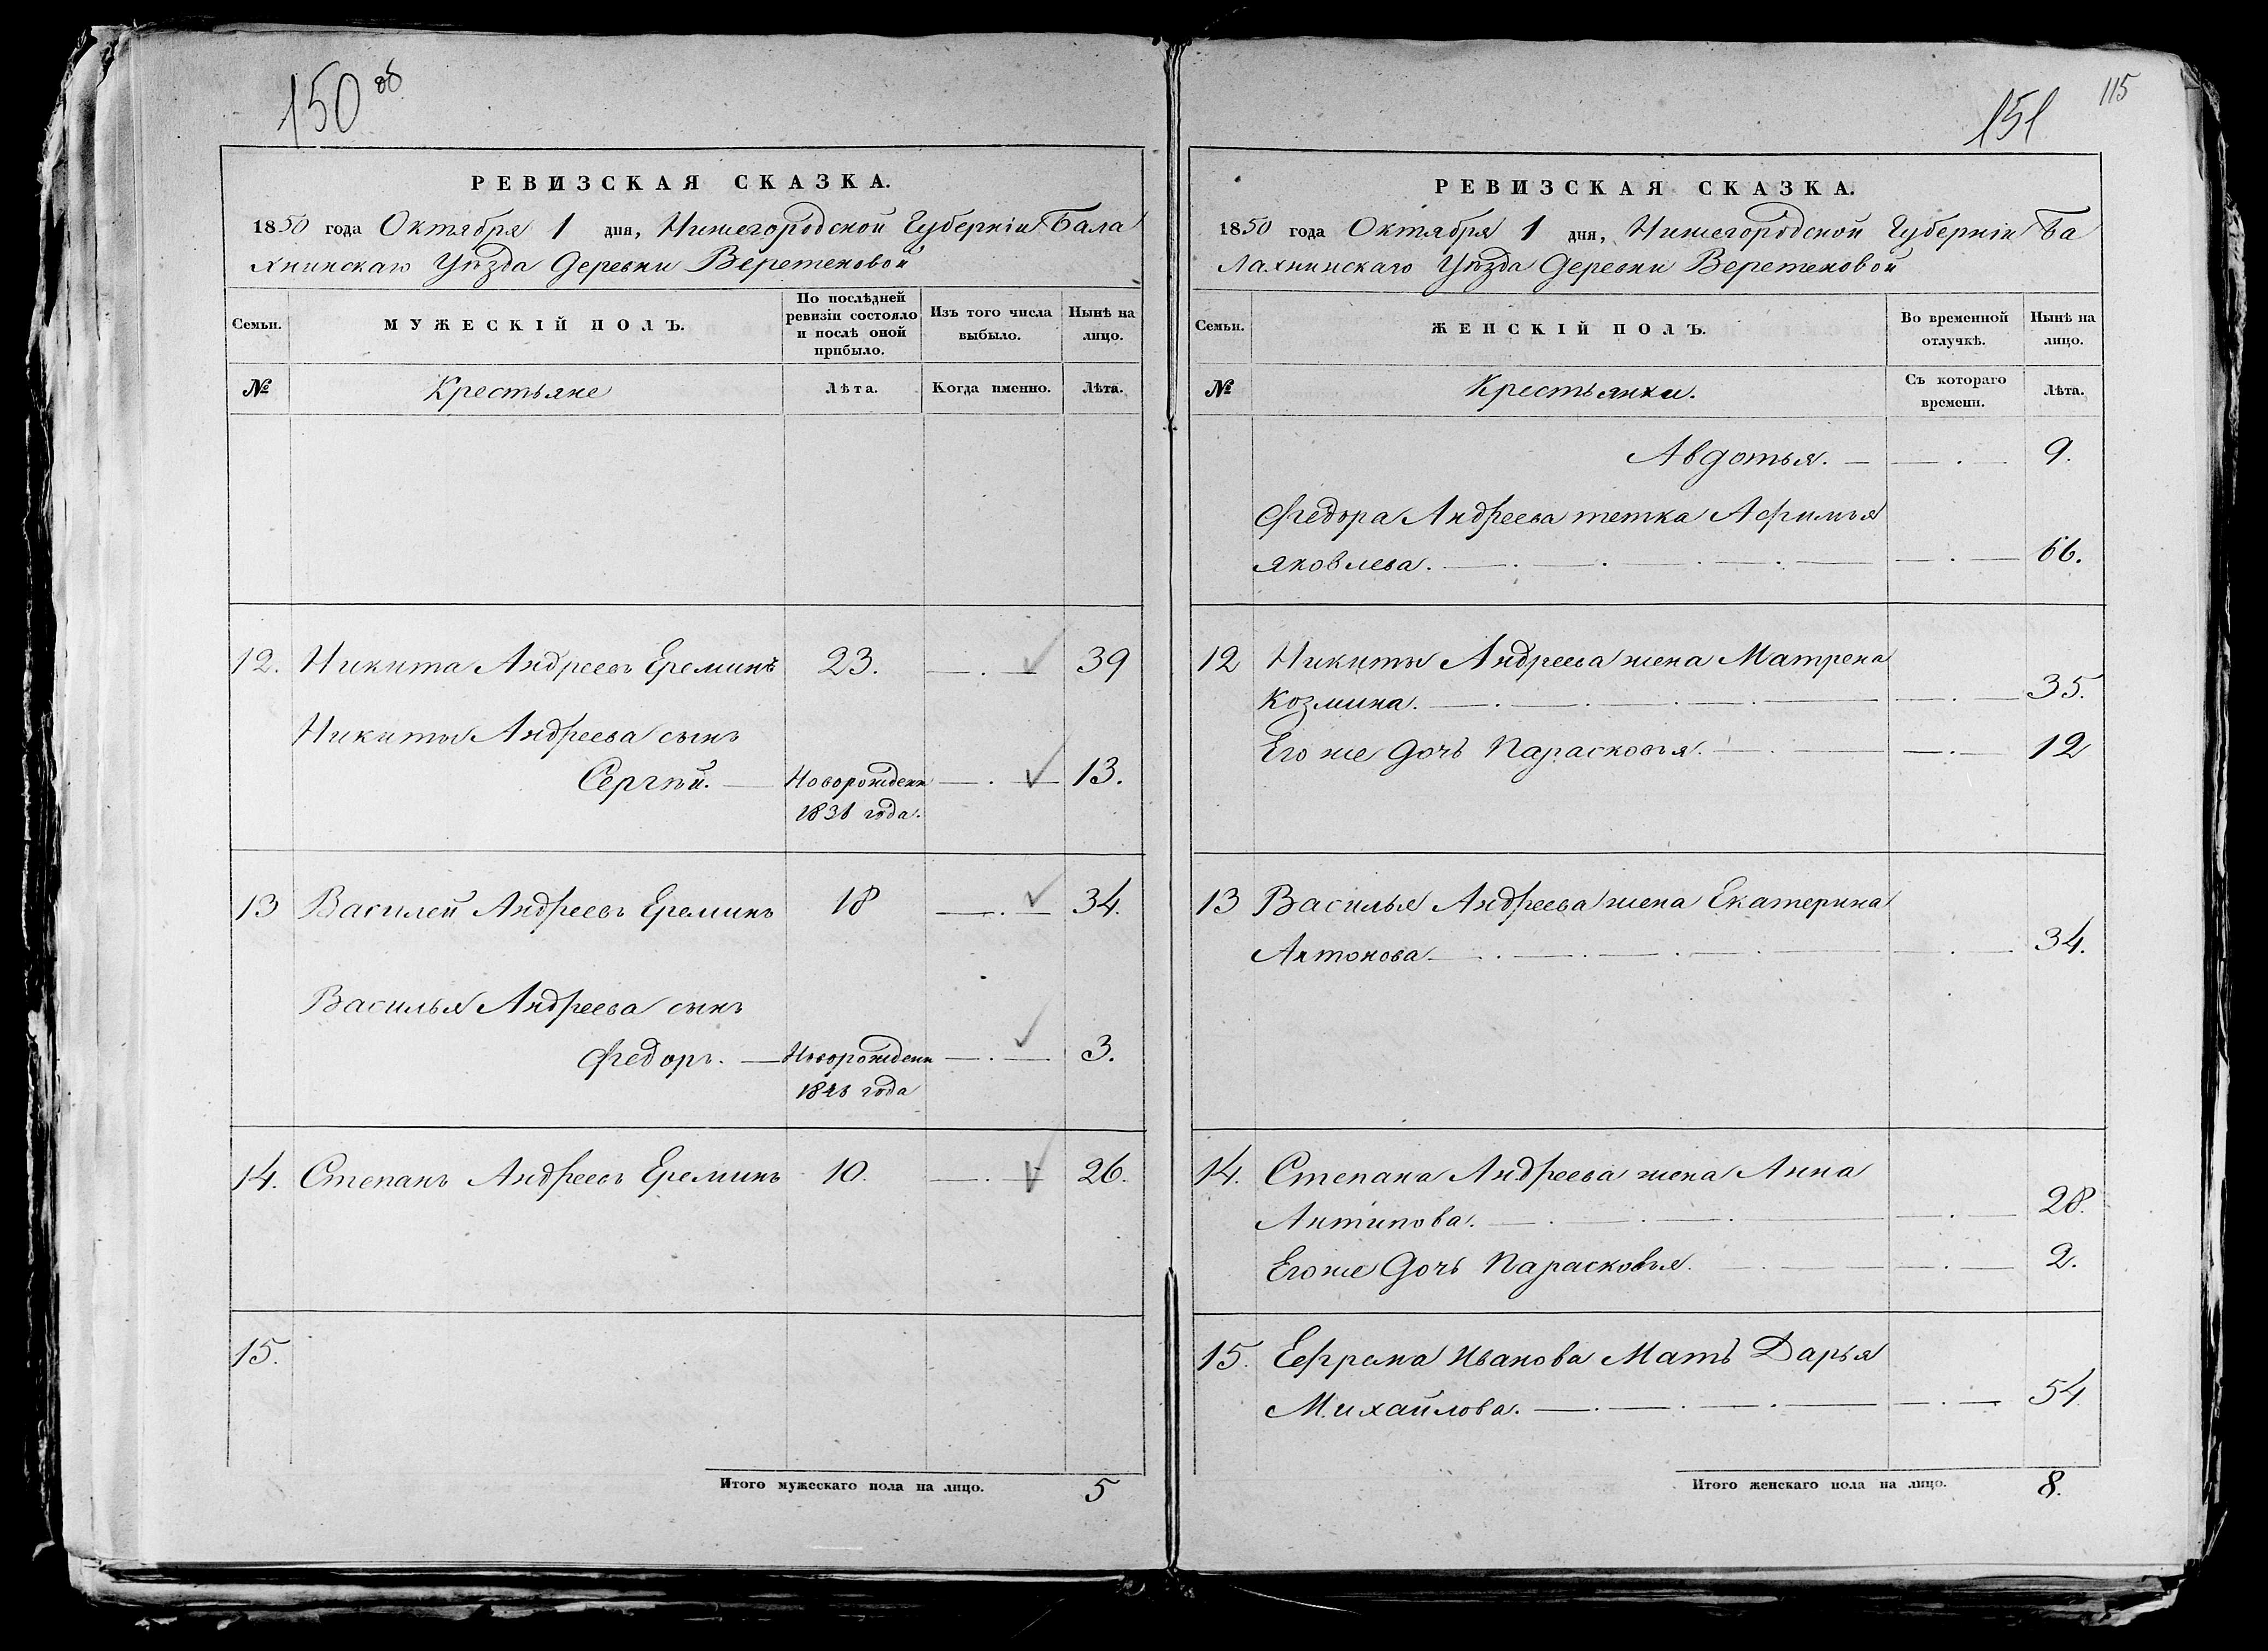 150 об
РЕВИЗСКАЯ СКАЗКА.
1850 года Октября 1 дня, Нижегородской Губернiи Бала
хнинскаго Уѣзда Деревни Веретеновой
Семьи. МУЖЕСКIЙ ПОЛЪ. По послѣдней ревизiи состояло и послѣ оной прибыло. Изъ того числа выбыло. Нынѣ на лицо.
№ Крестьяне Лѣта. Когда именно. Лѣта.
12. Никита Андреевъ Ереминъ 23. 39
Никиты Андреева сынъ
Сергѣй. Новорожденн 13.
года.
13 Василей Андреевъ Ереминъ 18 34.
Василья Андреева сынъ
Федоръ. Новорожденн 3.
года
14. Степанъ Андреевъ Ереминъ 10. 26.
15.
Итого мужескаго пола на лицо. 5
115
151
РЕВИЗСКАЯ СКАЗКА.
1850 года Октября 1 дня, Нижегородской Губернiи Ба
лахнинскаго Уѣзда Деревни Веретеновой
Семьи. ЖЕНСКIЙ ПОЛЪ. Во временной отлучкѣ. Нынѣ на лицо.
№ Крестьянки. Съ котораго времени. Лѣта.
Авдотья. 9.
Федора Андреева тетка Афимья
Яковлева. 66.
12 Никиты Андреева жена Матрена
Козмина. 35.
Его же дочь Парасковья. 12
13 Василья Андреева жена Екатерина
Антонова 34.
14. Степана Андреева жена Анна
Антипова. 28.
Его же дочь Парасковья. 2.
15. Ефрема Иванова Мать Дарья
Михайлова. 54
Итого женскаго пола на лицо. 8.